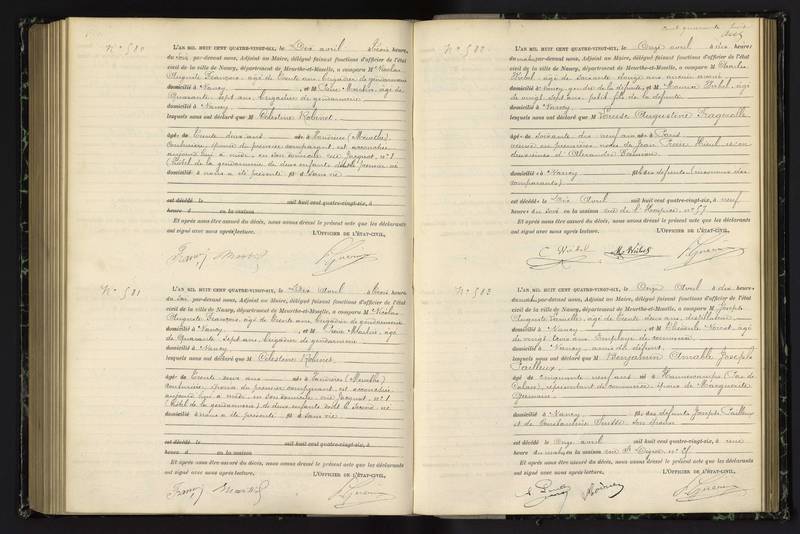 N° 580
L'AN MIL HUIT CENT QUATRE-VINGT-SIX, le Dix avril à trois heures
du soir, par-devant nous, Adjoint au Maire, délégué faisant fonctions d'officier de l'état
civil de la ville de Nancy, département de Meurthe-et-Moselle, a comparu M. Nicolas
Auguste François, âgé de trente ans, brigadier de gendarmerie
domicilié à Nancy, et M. Pierre Martin, âgé de
quarante-sept ans, brigadier de gendarmerie
domicilié à Nancy
lesquels nous ont déclaré que M Célestine Robinet
âgée de trente deux ans née à (Meurthe)
couturière, épouse du premier comparant, est accouchée
aujourd'hui à midi, en son domicile rue Jacquot, n° 1
(Hôtel de la gendarmerie) de deux enfants dont le premier né
domicilié à nous a été présenté fils d sans vie
est décédé le mil huit cent quatre-vingt-six, à
heure d en la maison
Et après nous être assuré du décès, nous avons dressé le présent acte que les déclarants
ont signé avec nous après lecture. L'OFFICIER DE L'ÉTAT-CIVIL,
N° 581
L'AN MIL HUIT CENT QUATRE-VINGT-SIX, le Dix Avril à trois heures
du soir, par-devant nous, Adjoint au Maire, délégué faisant fonctions d'officier de l'état
civil de la ville de Nancy, département de Meurthe-et-Moselle, a comparu M. Nicolas
Auguste François, âgé de trente ans, brigadier de gendarmerie
domicilié à Nancy, et M. Pierre Martin, âgé
de quarante-sept ans, brigadier de gendarmerie
domicilié à Nancy
lesquels nous ont déclaré que M Célestine Robinet
âgée de trente deux ans née à (Meurthe)
couturière, épouse du premier comparant, est accouchée
aujourd'hui à midi, en son domicile rue Jacquot, n° 1
(Hôtel de la gendarmerie) de deux enfants dont le second né
domicilié à nous a été présenté fils d sans vie
est décédé le mil huit cent quatre-vingt-six, à
heure d en la maison
Et après nous être assuré du décès, nous avons dressé le présent acte que les déclarants
ont signé avec nous après lecture. L'OFFICIER DE L'ÉTAT-CIVIL,
cent quarante huit
N° 582
L'AN MIL HUIT CENT QUATRE-VINGT-SIX, le Onze avril à dix heures
du matin, par-devant nous, Adjoint au Maire, délégué faisant fonctions d'officier de l'état
civil de la ville de Nancy, département de Meurthe-et-Moselle, a comparu M. Charles
âgé de soixante
domicilié à Nancy, gendre de la défunte, et M. Maurice
de vingt sept ans, petit fils de la défunte
domicilié à Nancy
lesquels nous ont déclaré que M Louise Augustine
âgée de soixante dix neuf ans née à Paris
veuve en premières noces de Jean Pierre et en
deuxièmes d'Alexandre
domicilié à Nancy fille des défunts (
comparants)
est décédée le Dix Avril mil huit cent quatre-vingt-six, à neuf
heures du soir en la maison rue de l'Hospice, n° 57
Et après nous être assuré du décès, nous avons dressé le présent acte que les déclarants
ont signé avec nous après lecture. L'OFFICIER DE L'ÉTAT-CIVIL,
N° 583
L'AN MIL HUIT CENT QUATRE-VINGT-SIX, le Onze Avril à dix heures
du matin, par-devant nous, Adjoint au Maire, délégué faisant fonctions d'officier de l'état
civil de la ville de Nancy, département de Meurthe-et-Moselle, a comparu M. Joseph
Auguste âgé de trente deux ans, distillateur
domicilié à Nancy, et M. âgé
de vingt trois ans, employé de commerce
domicilié à Nancy, amis du défunt
lesquels nous ont déclaré que M Benjamin Amable Joseph
Pailleux
âgé de cinquante neuf ans né à Hannescamps (Pas de
Calais), représentant de commerce, époux de Marguerite
Germain
domicilié à Nancy fils des défunts Joseph Pailleux
et de Constantine son épouse
est décédé le Onze avril mil huit cent quatre-vingt-six, à une
heure du matin en la maison rue St Dizier, n°
Et après nous être assuré du décès, nous avons dressé le présent acte que les déclarants
ont signé avec nous après lecture. L'OFFICIER DE L'ÉTAT-CIVIL,